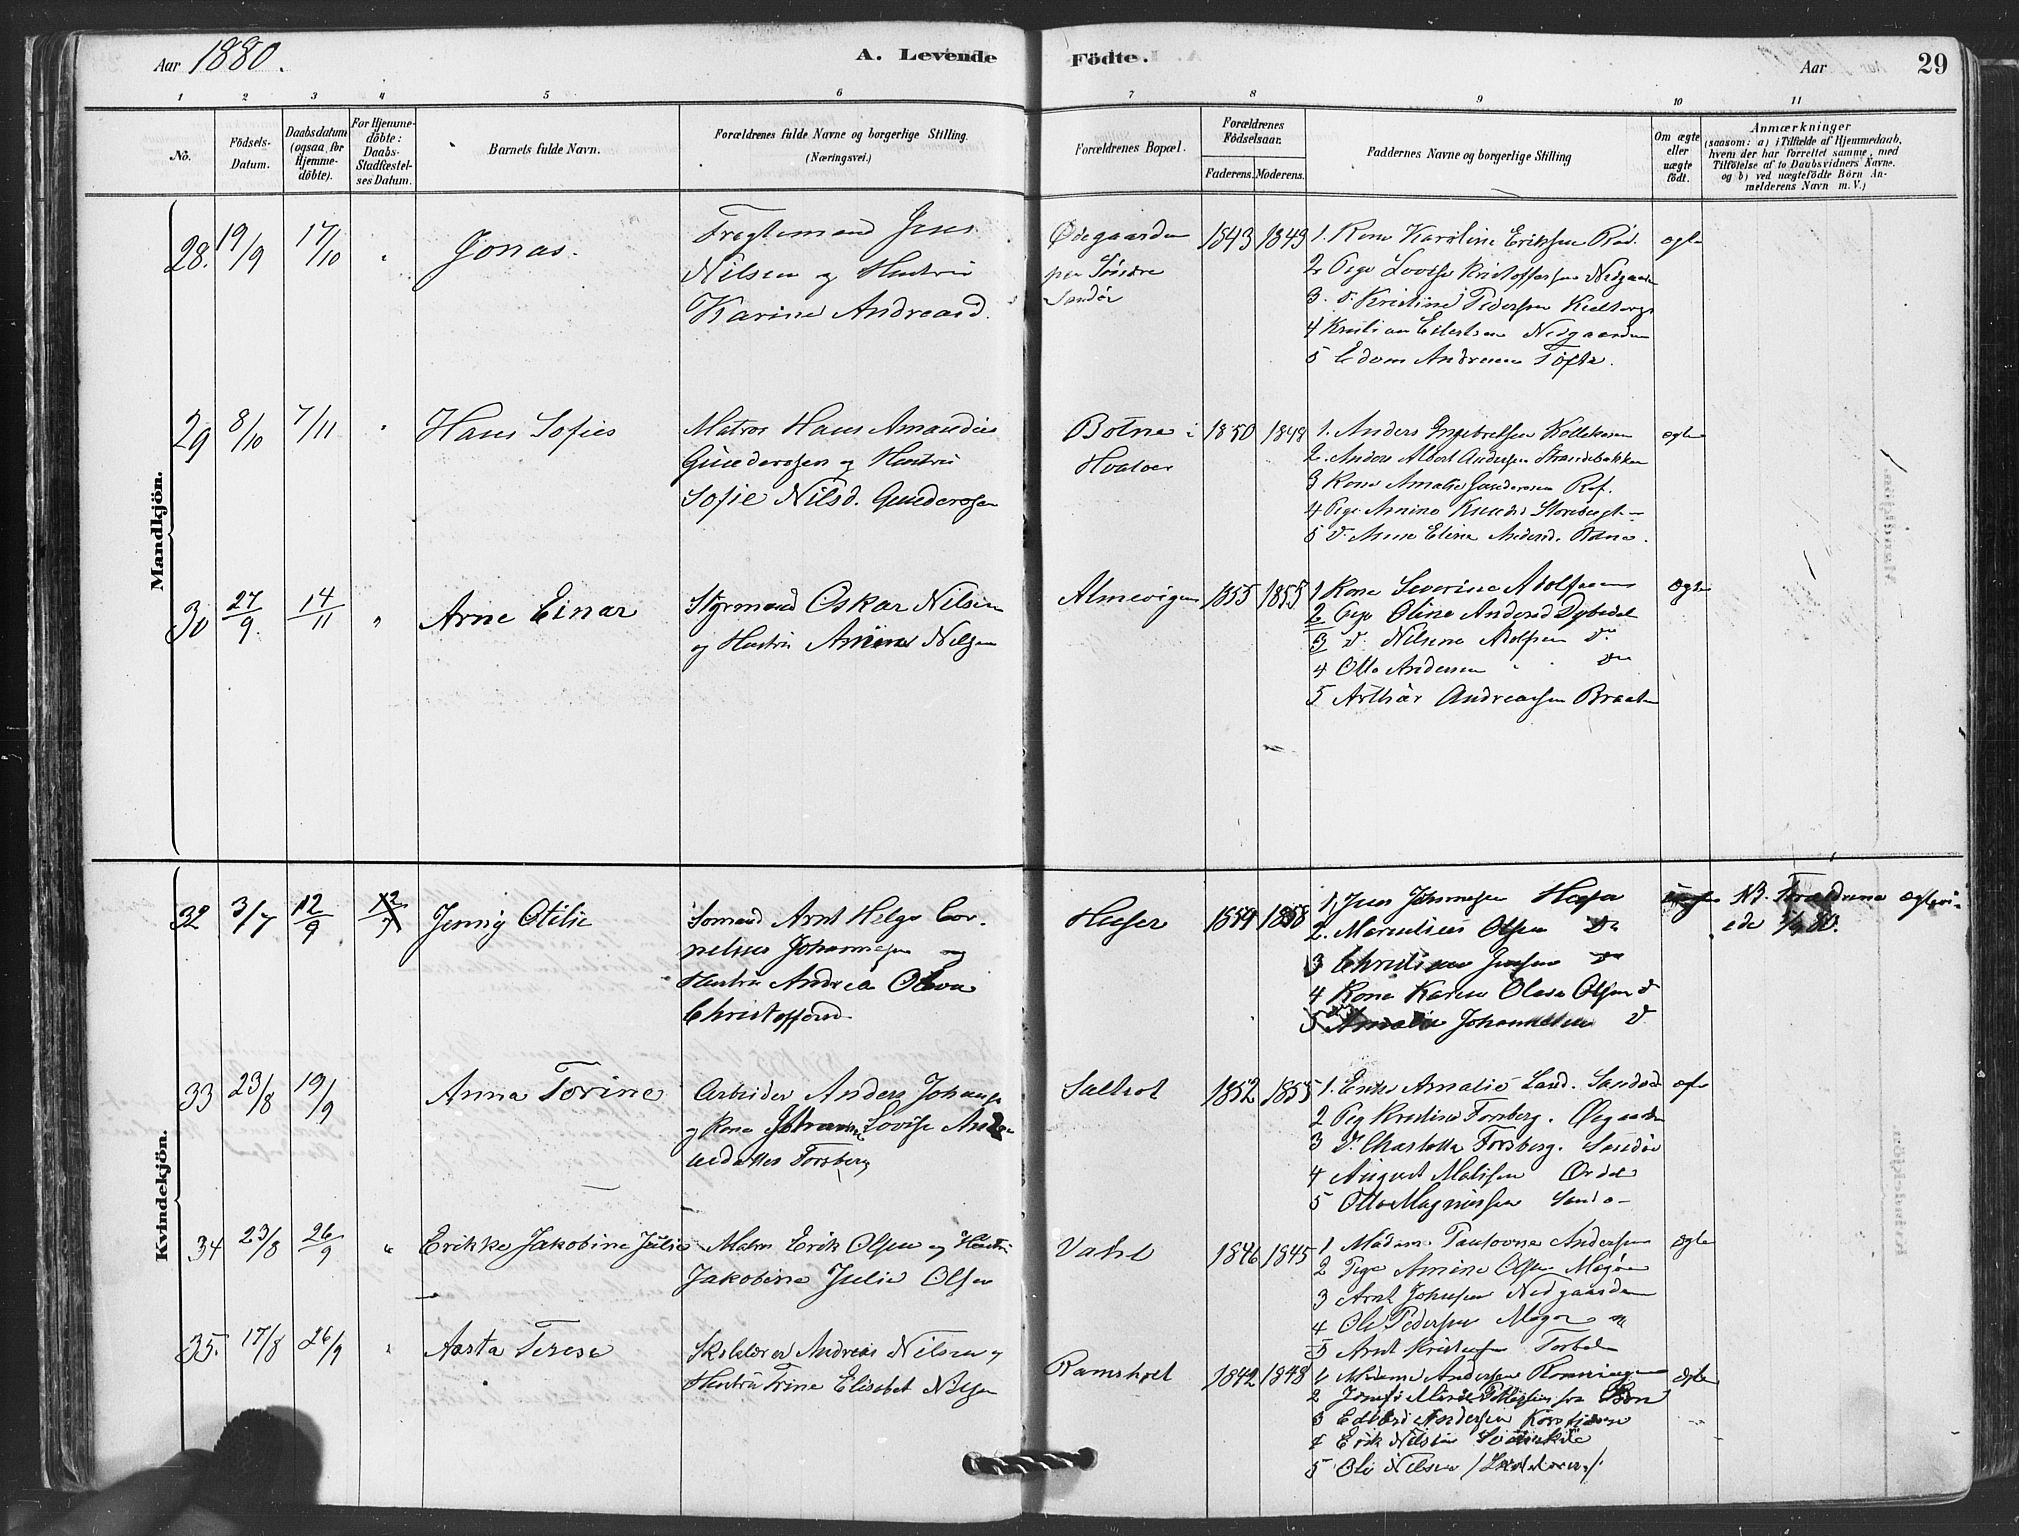 Aar 1880.
A. Levende
Födte.
Aar
29
1 2 3 4 5 6 7 8 9 10 11
No.
Födsels-
Datum.
Daabsdatum
(ogsaa for
Hjemme-
döbte).
For Hjemme-
döbte:
Daabs-
Stadfæstel-
ses Datum.
Barnets fulde Navn.
Forældrenes fulde Navne og borgerlige Stilling.
(Næringsvei.)
Forældrenes Bopæl.
Forældrenes
Födselsaar.
Faderens. Moderens.
Faddernes Navne og borgerlige Stilling
Om ægte
eller
uægte
födt.
Anmærkninger
(saasom: a) i Tilfælde af Hjemmedaab,
hvem der har forrettet samme, med
Tilföielse af to Daabsvidners Navne.
og b) ved uægtefödte Börn An-
melderens Navn m. V.)
Mandkjön.
28. 19/9 17/10 " Jonas.
Fragtemand Jens
Nilsen og Hustru
Karine Andreasd.
Ødegaarden
pr. Søndre
Sandø
1843 1849
1. Kone Karoline Eriksen Rød.
2 Pige Lovise Kristoffersen Nedgaarden
3. d. Kristine Pedersen Kielberg
4 Kristian Eilertsen Nedgaarden
5 Edom Andersen Tofte.
ægte
29 8/10 7/11 " Hans Sofies
Matros Hans Amandus
Gundersen og Hustru
Sofie Nilsd. Gundersen
Botne i
Hvaløer
1850 1848
1. Anders Ingebretsen Kollekosen
2. Anders Albert Andersen Strandebakken
3 Kone Amalie Gundersen Rof.
4 Pige Amine Knuds
5 d. Anne Eline Andersd. Botne.
ægte
30 27/9. 14/11 " Arne Einar
Styrmand Oskar Nilsen
og Hustru Amine Nilsen
Almevigen
1855 1855
1 Kone Severine Adolfsen
2 Pige Oline Andersd Dybedal
3 d. Nilsine Adolfsen do
4 Otto Andersen " do
5 Arthur Andreassen Braaten
ægte
Kvindekjön.
32 3/7 12/9 12/9 Jenny Otilie
Sømand Arnt Helge Cor-
nelius Johannesen og
Hustru Andrea Olava
Christoffersd.
Huser
1854 1858
1. Jens Johannesen Huser
2. Marselius Olsen do
3 Christian Jensen do
4 Kone Karen Olava Olsen d
5 Amalie Johannesen d.
NB. Forældrene ægtevi-
ede 80.
33 23/8 19/9 Anna Torine
Arbeider Anders Johans
og Kone Johanne Lovise
Forsberg
Saltholt
1852 1855
1. Enke Amalie Lund. Sandød
2 Pig Kristine Forsberg. Øegaarden
3 d. Charlotte Forsberg. Sandø
4 August Matisen
5 Otto Magnussen Sandø
34 23/8 26/9 " Erikke Jakobine Julie
Matros Erik Olsen og Hustru
Jakobine Julie Olsen
Vatne
1846 1845
1 Madam Andersen
2 Pige Amine Olsen Magøe
3 Arnt Johnsen Nedgaarden
4 Ole Pedersen Magøe
5 Arnt Kristiansen
ægte
35. 17/8 26/9 " Aasta Terese
Skolelærer Andreas Nilsen og
Hustru Trine Elisabet Nilsen
Ramsholt
1842 1848
1 Madame Andersen Rønningen
2
3 Edvard Andersen
4 Erik Nilsen
5 Ole Nilsen
ægte